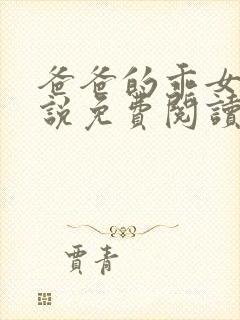 爸爸的乖女
說免費閱讀
賈青